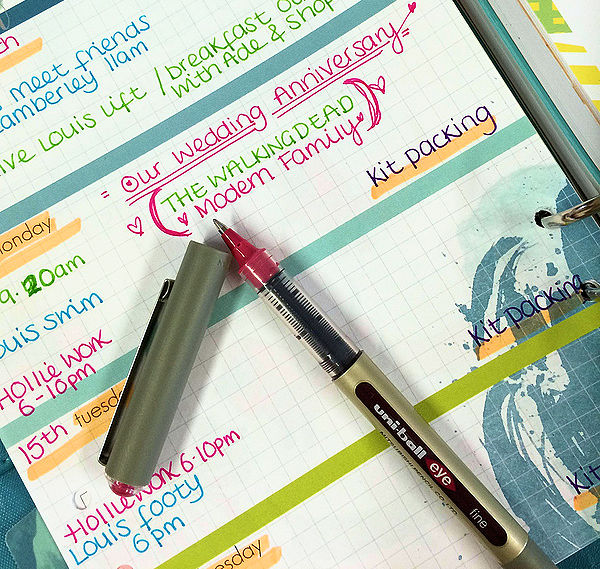 meet friends
camberley 11am
Louis Lift / breakfast
with Ade & shop
= Our Wedding Anniversary =
THE WALKING DEAD
Modern Family
Kit packing
9.20am
swim
Kit packing
Hollie Work
6-10pm
15th
Hollie Work 6-10pm
Louis footy
6pm
Kit
uni-ball eye
fine